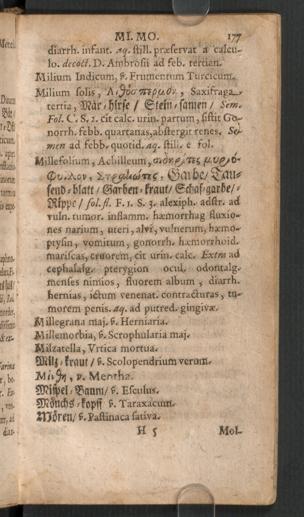 MI. MO. 177
diarrh. infant. aq. still. præservat a calcu-
lo. decoct. D. Ambrosii ad feb. tertian.
Milium Indicum, v. Frumentum Turcicum.
Milium solis, Saxifraga
tertia, Mär-hirse / Stein-samen / Sem.
Fol. C. S. 2. cit calc. urin. partum, sistit Go-
norrh. febb. quartanas, abstergit renes. Se-
men ad febb. quotid. aq. still. e fol.
Millefolium, Achilleum,
Garbe / Tau-
send-blatt / Garben-kraut / Schaf-garbe /
Rippe / fol. fl. F. 1. S. 3. alexiph. adstr. ad
vuln. tumor. inflamm. hæmorrhag fluxio-
nes narium, uteri, alvi, vulnerum, hæmo-
ptysin, vomitum, gonorrh. hæmorrhoid.
mariscas, cruorem, cit urin. calc. Extra ad
cephalalg. pterygion ocul. odontalg.
menses nimios, fluorem album, diarrh.
hernias, ictum venenat. contracturas, tu-
morem penis. aq. ad putred. gingivæ.
Millegrana maj. v. Herniaria.
Millemorbia, v. Scrophularia maj.
Milzatella, Vrtica mortua.
Miltz-kraut / v. Scolopendrium verum.
Μίνθη, v. Mentha.
Mispel-Baum / v. Esculus.
Mönchs-kopff v. Taraxacum.
Mören / v. Pastinaca sativa.
H 5 Mol-